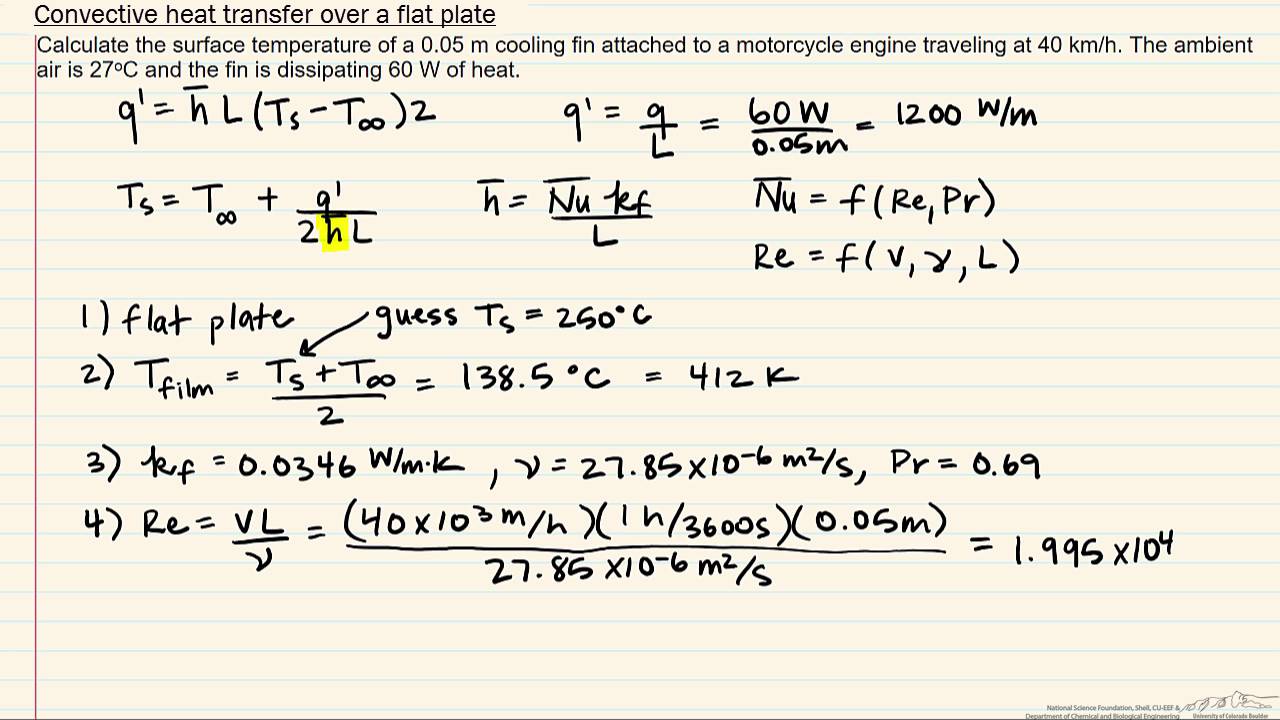 Convective heat transfer over a flat plate
Calculate the surface temperature of a 0.05 m cooling fin attached to a motorcycle engine traveling at 40 km/h. The ambient
air is 27°C and the fin is dissipating 60 W of heat.
q' = h̅ L (Ts - T∞) 2
q' = q/L = 60 W/0.05m = 1200 W/m
Ts = T∞ + q'/2h̅L
h̅ = N̅u̅ kf/L
N̅u̅ = f(Re, Pr)
Re = f(V, γ, L)
1) flat plate guess Ts = 250°C
2) Tfilm = Ts + T∞/2 = 138.5 °C = 412 K
3) kf = 0.0346 W/m·K , ν = 27.85 x10-6 m²/s, Pr = 0.69
4) Re = VL/ν = (40 x10³ m/h)(1 h/3600s)(0.05m)/27.85 x10-6 m²/s = 1.995 x10⁴
National Science Foundation, Shell, CU-EEF &
Department of Chemical and Biological Engineering University of Colorado Boulder